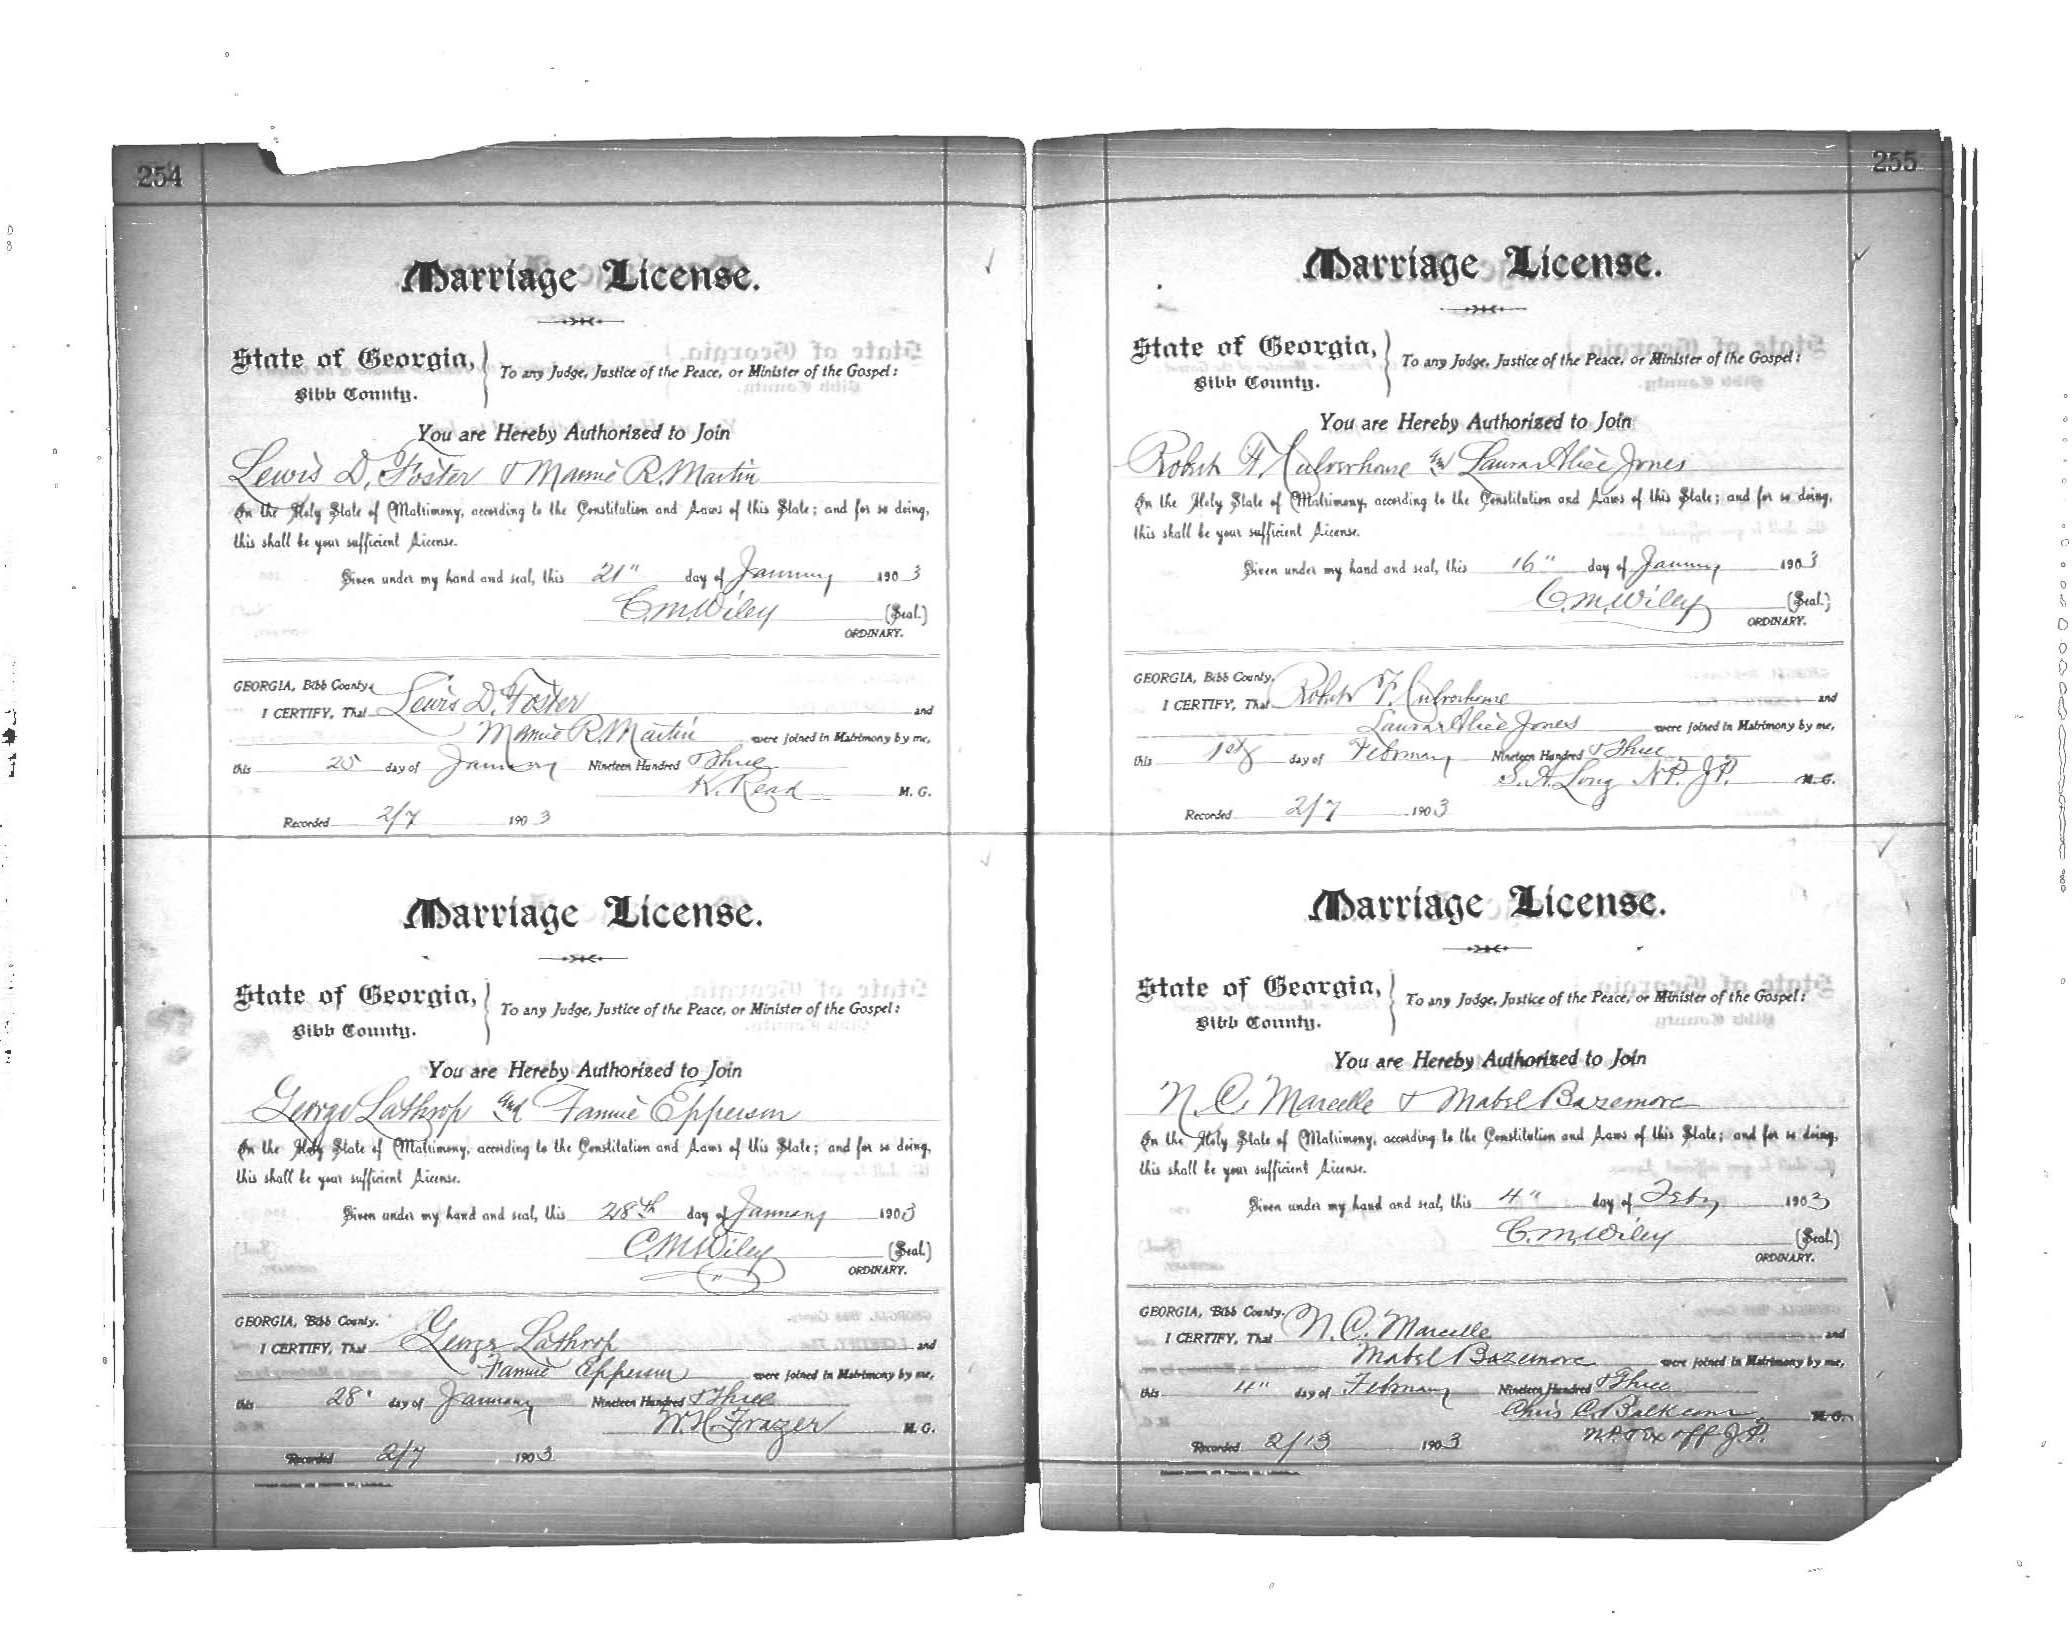 254
Marriage License.
State of Georgia,
Bibb County.
To any Judge, Justice of the Peace, or Minister of the Gospel:
You are Hereby Authorized to Join
Lewis D. Foster & Mamie R. Martin
In the Holy State of Matrimony, according to the Constitution and Laws of this State; and for so doing,
this shall be your sufficient License.
Given under my hand and seal, this 21" day of January 1903
C.M. Wiley (Seal.)
ORDINARY.
GEORGIA, Bibb County.
I CERTIFY, That Lewis D. Foster and
Mamie R. Martin were joined in Matrimony by me,
this 25 day of January Nineteen Hundred & Three
K. Read M. G.
Recorded 2/7 1903
Marriage License.
State of Georgia,
Bibb County.
To any Judge, Justice of the Peace, or Minister of the Gospel:
You are Hereby Authorized to Join
George Lathrop and Fannie Epperson
In the Holy State of Matrimony, according to the Constitution and Laws of this State; and for so doing,
this shall be your sufficient License.
Given under my hand and seal, this 28th day of January 1903
C.M. Wiley (Seal.)
ORDINARY.
GEORGIA, Bibb County.
I CERTIFY, That George Lathrop and
Fannie Epperson were joined in Matrimony by me,
this 28" day of January Nineteen Hundred & Three
W.H. Frazer M. G.
Recorded 2/7 1903
255
Marriage License.
State of Georgia,
Bibb County.
To any Judge, Justice of the Peace, or Minister of the Gospel:
You are Hereby Authorized to Join
Robert F. Culverhouse and Laura Alice Jones
In the Holy State of Matrimony, according to the Constitution and Laws of this State; and for so doing,
this shall be your sufficient License.
Given under my hand and seal, this 16" day of January 1903
C.M. Wiley (Seal.)
ORDINARY.
GEORGIA, Bibb County.
I CERTIFY, That Robert F. Culverhouse and
Laura Alice Jones were joined in Matrimony by me,
this 1st day of February Nineteen Hundred & Three
S.A. Long N.P. J.P. M. G.
Recorded 2/7 1903
Marriage License.
State of Georgia,
Bibb County.
To any Judge, Justice of the Peace, or Minister of the Gospel:
You are Hereby Authorized to Join
N. C. Marcelle & Mabel Bazemore
In the Holy State of Matrimony, according to the Constitution and Laws of this State; and for so doing,
this shall be your sufficient License.
Given under my hand and seal, this 4" day of Feby 1903
C.M. Wiley (Seal.)
ORDINARY.
GEORGIA, Bibb County.
I CERTIFY, That N. C. Marcelle and
Mabel Bazemore were joined in Matrimony by me,
this 4" day of February Nineteen Hundred & Three
Chris C. Balkcom M. G.
N.P. & Ex off J.P.
Recorded 2/13 1903